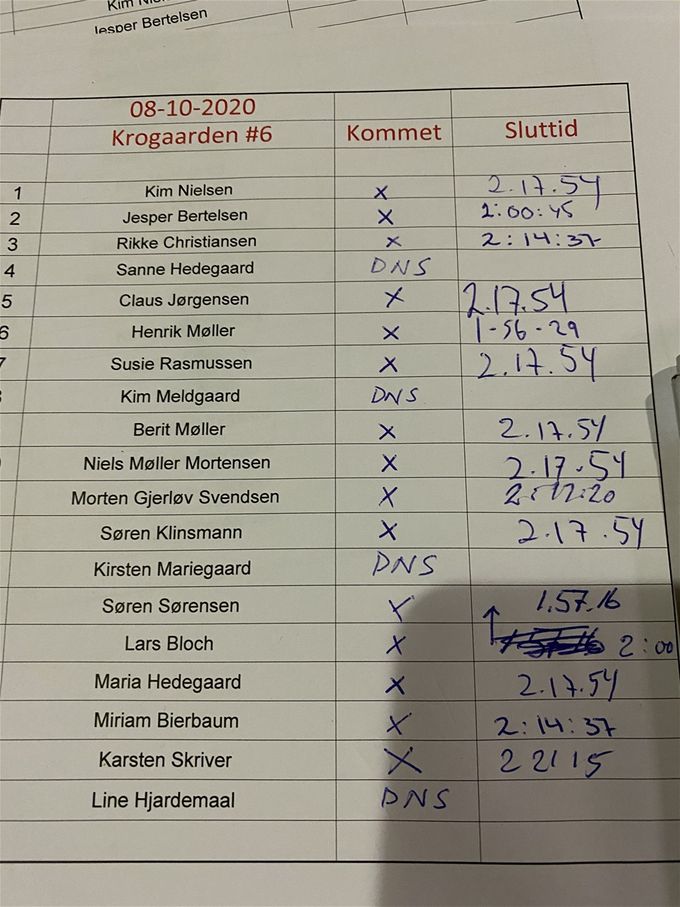 Kim
Jesper Bertelsen
08-10-2020
Krogaarden #6 Kommet Sluttid
1 Kim Nielsen x 2.17.54
2 Jesper Bertelsen x 2:00:45
3 Rikke Christiansen x 2:14:37
4 Sanne Hedegaard DNS
5 Claus Jørgensen x 2.17.54
6 Henrik Møller x 1-56-29
7 Susie Rasmussen x 2.17.54
Kim Meldgaard DNS
Berit Møller x 2.17.54
Niels Møller Mortensen x 2.17.54
Morten Gjerløv Svendsen x
Søren Klinsmann x 2.17.54
Kirsten Mariegaard DNS
Søren Sørensen x 1.57.16
Lars Bloch x 2:00
Maria Hedegaard x 2.17.54
Miriam Bierbaum x 2:14:37
Karsten Skriver x 2 21 15
Line Hjardemaal DNS